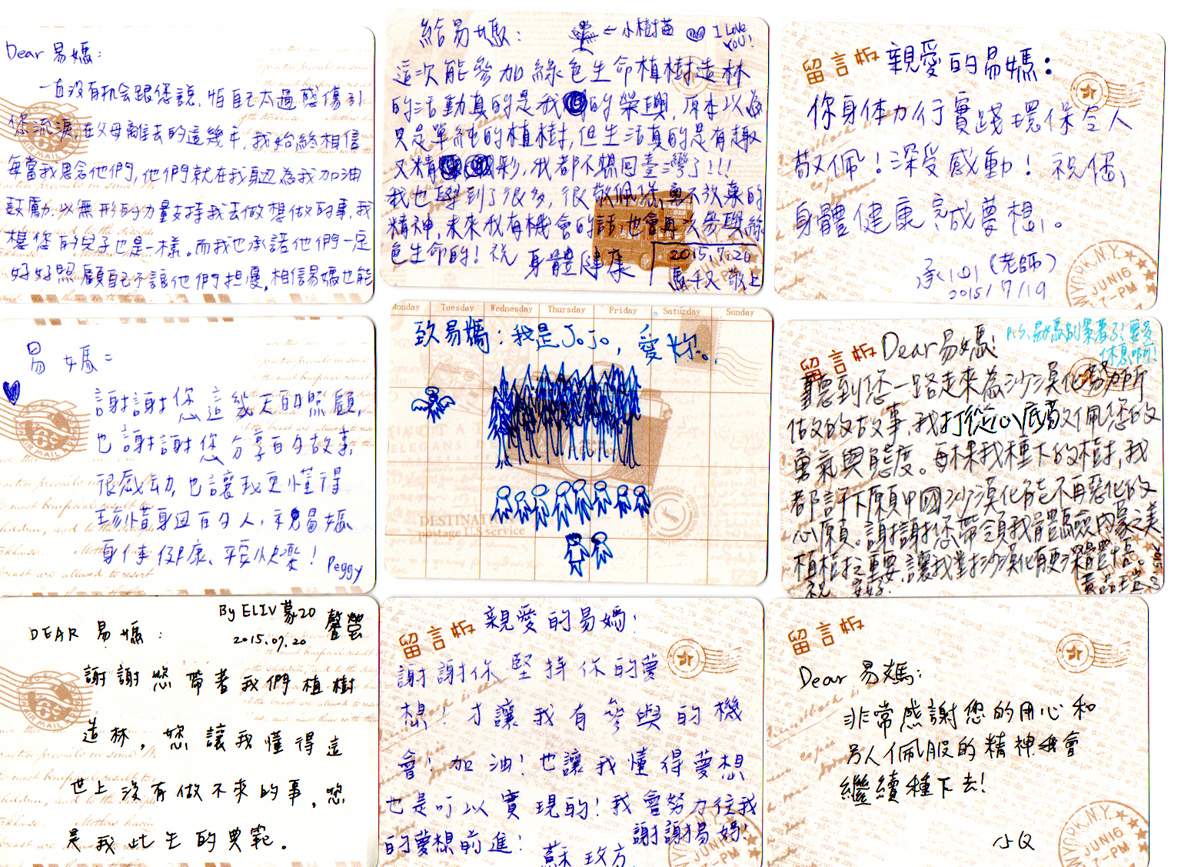 Dear 易媽:
一直沒有机会跟您說,怕自己太過感傷引
您流淚,在父母離去的這幾年,我始終相信
每當我思念他們,他們就在我身边為我加油
鼓勵,以無形的力量支持我去做想做的事,我
想您的兒子也是一樣。而我也承諾他們一定
好好照顧自己不讓他們担憂,相信易媽也能
給易媽:
←小樹苗
I Love
YOU!
這次能參加綠色生命植樹造林
的活動真的是我的榮興,原本以為
只是單純的植樹,但生活真的是有趣
又精彩,我都不想回臺灣了!!!
我也學到了很多,很敬佩您,勇不放棄的
精神,未來我有機會的話,也會再次參與綠
色生命的!祝 身體健康
2015.7.20
敬上
留言板
親愛的易媽:
你身体力行實踐環保令人
敬佩!深受感動!祝您
身體健康完成夢想。
(老師)
2015/7/19
NY.PK, N.Y.
JUN 16
7-PM
易媽:
謝謝您這幾天的照顧,
也謝謝您分享的故事
很感动,也讓我更懂得
珍惜身边的人,祝易媽
身体健康、平安快樂!
Peggy
Monday Tuesday Wednesday Thursday Friday Saturday Sunday
致易媽:我是JoJo,愛妳。
DESTINAT
postage U.S. service
P.S.易媽別累著了!要多
休息啊!
留言板
Dear易媽:
聽到您一路走來為沙漠化努力所
做的故事,我打從心底敬佩您的
勇氣與態度。每棵我種下的樹,我
都許下願中國沙漠化能不再惡化的
心願。謝謝您帶領我體驗內蒙之美
植樹之重要,讓我對沙漠化有更深體悟。
祝 安好
By ELIV 蒙20
2015.07.20
DEAR 易媽:
謝謝您帶著我們植樹
造林,您讓我懂得這
世上沒有做不來的事,您
是我此生的典範。
留言板
親愛的易媽:
謝謝你堅持你的夢
想!才讓我有參與的機
會!加油!也讓我懂得夢想
也是可以實現的!我會努力往我
的夢想前進!
謝謝易媽!
蘇玫方
留言板
Dear 易媽:
非常感謝您的用心和
另人佩服的精神我會
繼續種下去!
小Q
NY.PK, N.Y.
JUN 16
7-PM